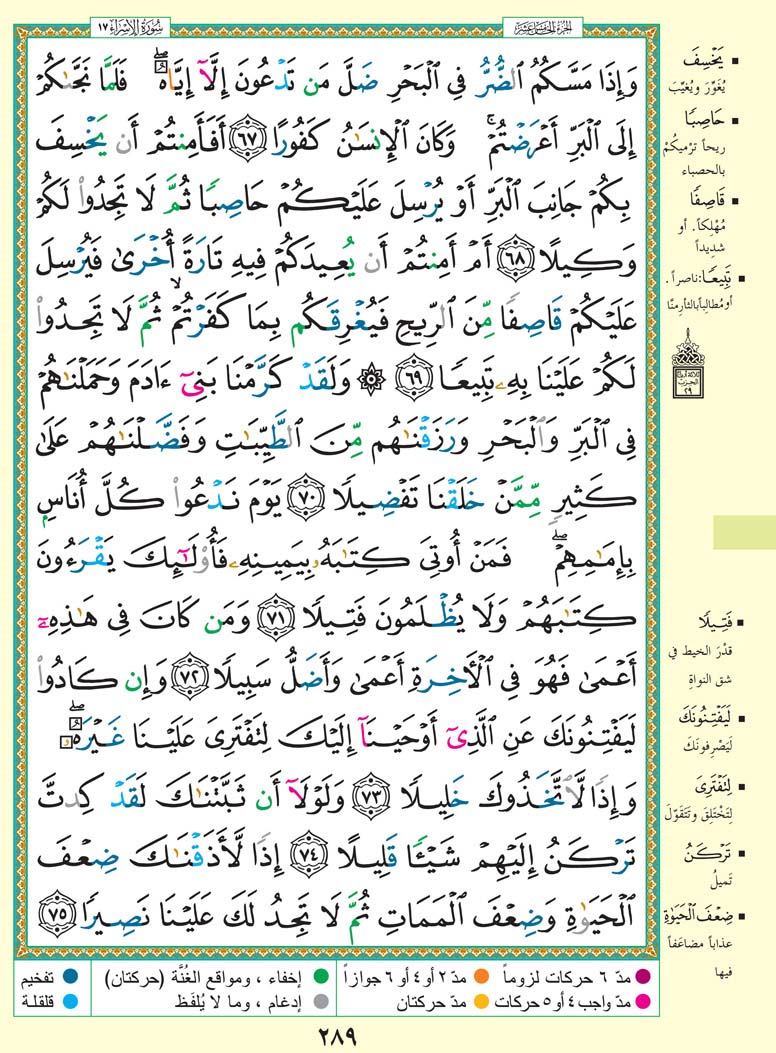 الجُزْءُ الخَامِسُ عَشَر
سُورَةُ الإِسْرَاءِ ١٧
وَإِذَا مَسَّكُمُ ٱلضُّرُّ فِى ٱلْبَحْرِ ضَلَّ مَن تَدْعُونَ إِلَّآ إِيَّاهُ ۖ فَلَمَّا نَجَّىٰكُمْ
إِلَى ٱلْبَرِّ أَعْرَضْتُمْ ۚ وَكَانَ ٱلْإِنسَٰنُ كَفُورًا ٦٧ أَفَأَمِنتُمْ أَن يَخْسِفَ
بِكُمْ جَانِبَ ٱلْبَرِّ أَوْ يُرْسِلَ عَلَيْكُمْ حَاصِبًا ثُمَّ لَا تَجِدُوا۟ لَكُمْ
وَكِيلًا ٦٨ أَمْ أَمِنتُمْ أَن يُعِيدَكُمْ فِيهِ تَارَةً أُخْرَىٰ فَيُرْسِلَ
عَلَيْكُمْ قَاصِفًا مِّنَ ٱلرِّيحِ فَيُغْرِقَكُم بِمَا كَفَرْتُمْ ۙ ثُمَّ لَا تَجِدُوا۟
لَكُمْ عَلَيْنَا بِهِۦ تَبِيعًا ٦٩ ۞ وَلَقَدْ كَرَّمْنَا بَنِىٓ ءَادَمَ وَحَمَلْنَٰهُمْ
فِى ٱلْبَرِّ وَٱلْبَحْرِ وَرَزَقْنَٰهُم مِّنَ ٱلطَّيِّبَٰتِ وَفَضَّلْنَٰهُمْ عَلَىٰ
كَثِيرٍ مِّمَّنْ خَلَقْنَا تَفْضِيلًا ٧٠ يَوْمَ نَدْعُوا۟ كُلَّ أُنَاسٍۭ
بِإِمَٰمِهِمْ ۖ فَمَنْ أُوتِىَ كِتَٰبَهُۥ بِيَمِينِهِۦ فَأُو۟لَٰٓئِكَ يَقْرَءُونَ
كِتَٰبَهُمْ وَلَا يُظْلَمُونَ فَتِيلًا ٧١ وَمَن كَانَ فِى هَٰذِهِۦٓ
أَعْمَىٰ فَهُوَ فِى ٱلْـَٔاخِرَةِ أَعْمَىٰ وَأَضَلُّ سَبِيلًا ٧٢ وَإِن كَادُوا۟
لَيَفْتِنُونَكَ عَنِ ٱلَّذِىٓ أَوْحَيْنَآ إِلَيْكَ لِتَفْتَرِىَ عَلَيْنَا غَيْرَهُۥ ۖ
وَإِذًا لَّٱتَّخَذُوكَ خَلِيلًا ٧٣ وَلَوْلَآ أَن ثَبَّتْنَٰكَ لَقَدْ كِدتَّ
تَرْكَنُ إِلَيْهِمْ شَيْـًٔا قَلِيلًا ٧٤ إِذًا لَّأَذَقْنَٰكَ ضِعْفَ
ٱلْحَيَوٰةِ وَضِعْفَ ٱلْمَمَاتِ ثُمَّ لَا تَجِدُ لَكَ عَلَيْنَا نَصِيرًا ٧٥
▪ يَخْسِفَ
يُغَوِّرَ ويُغيِّبَ
▪ حَاصِبًا
ريحاً ترْميكُمْ
بالحصباء
▪ قَاصِفًا
مُهْلِكاً. أو
شديداً
▪ تَبِيعًا: ناصراً.
أو مُطالِباً بالثأر منَّا
ثلاثة أرباع
الحزب
٢٩
▪ فَتِيلًا
قدْرَ الخيط في
شق النواةِ
▪ لَيَفْتِنُونَكَ
لَيَصْرِفونَكَ
▪ لِتَفْتَرِىَ
لِتَخْتَلِقَ وتَتَقَوَّلَ
▪ تَرْكَنُ
تَميلُ
▪ ضِعْفَ ٱلْحَيَوٰةِ
عذاباً مضاعَفاً
فيها
مدّ ٦ حركات لزوماً مدّ ٢ أو ٤ أو ٦ جوازاً إخفاء ، ومواقع الغُنَّة (حركتان) تفخيم
مدّ واجب ٤ أو ٥ حركات مدّ حركتان إدغام ، وما لا يُلفَظ قلقلة
٢٨٩